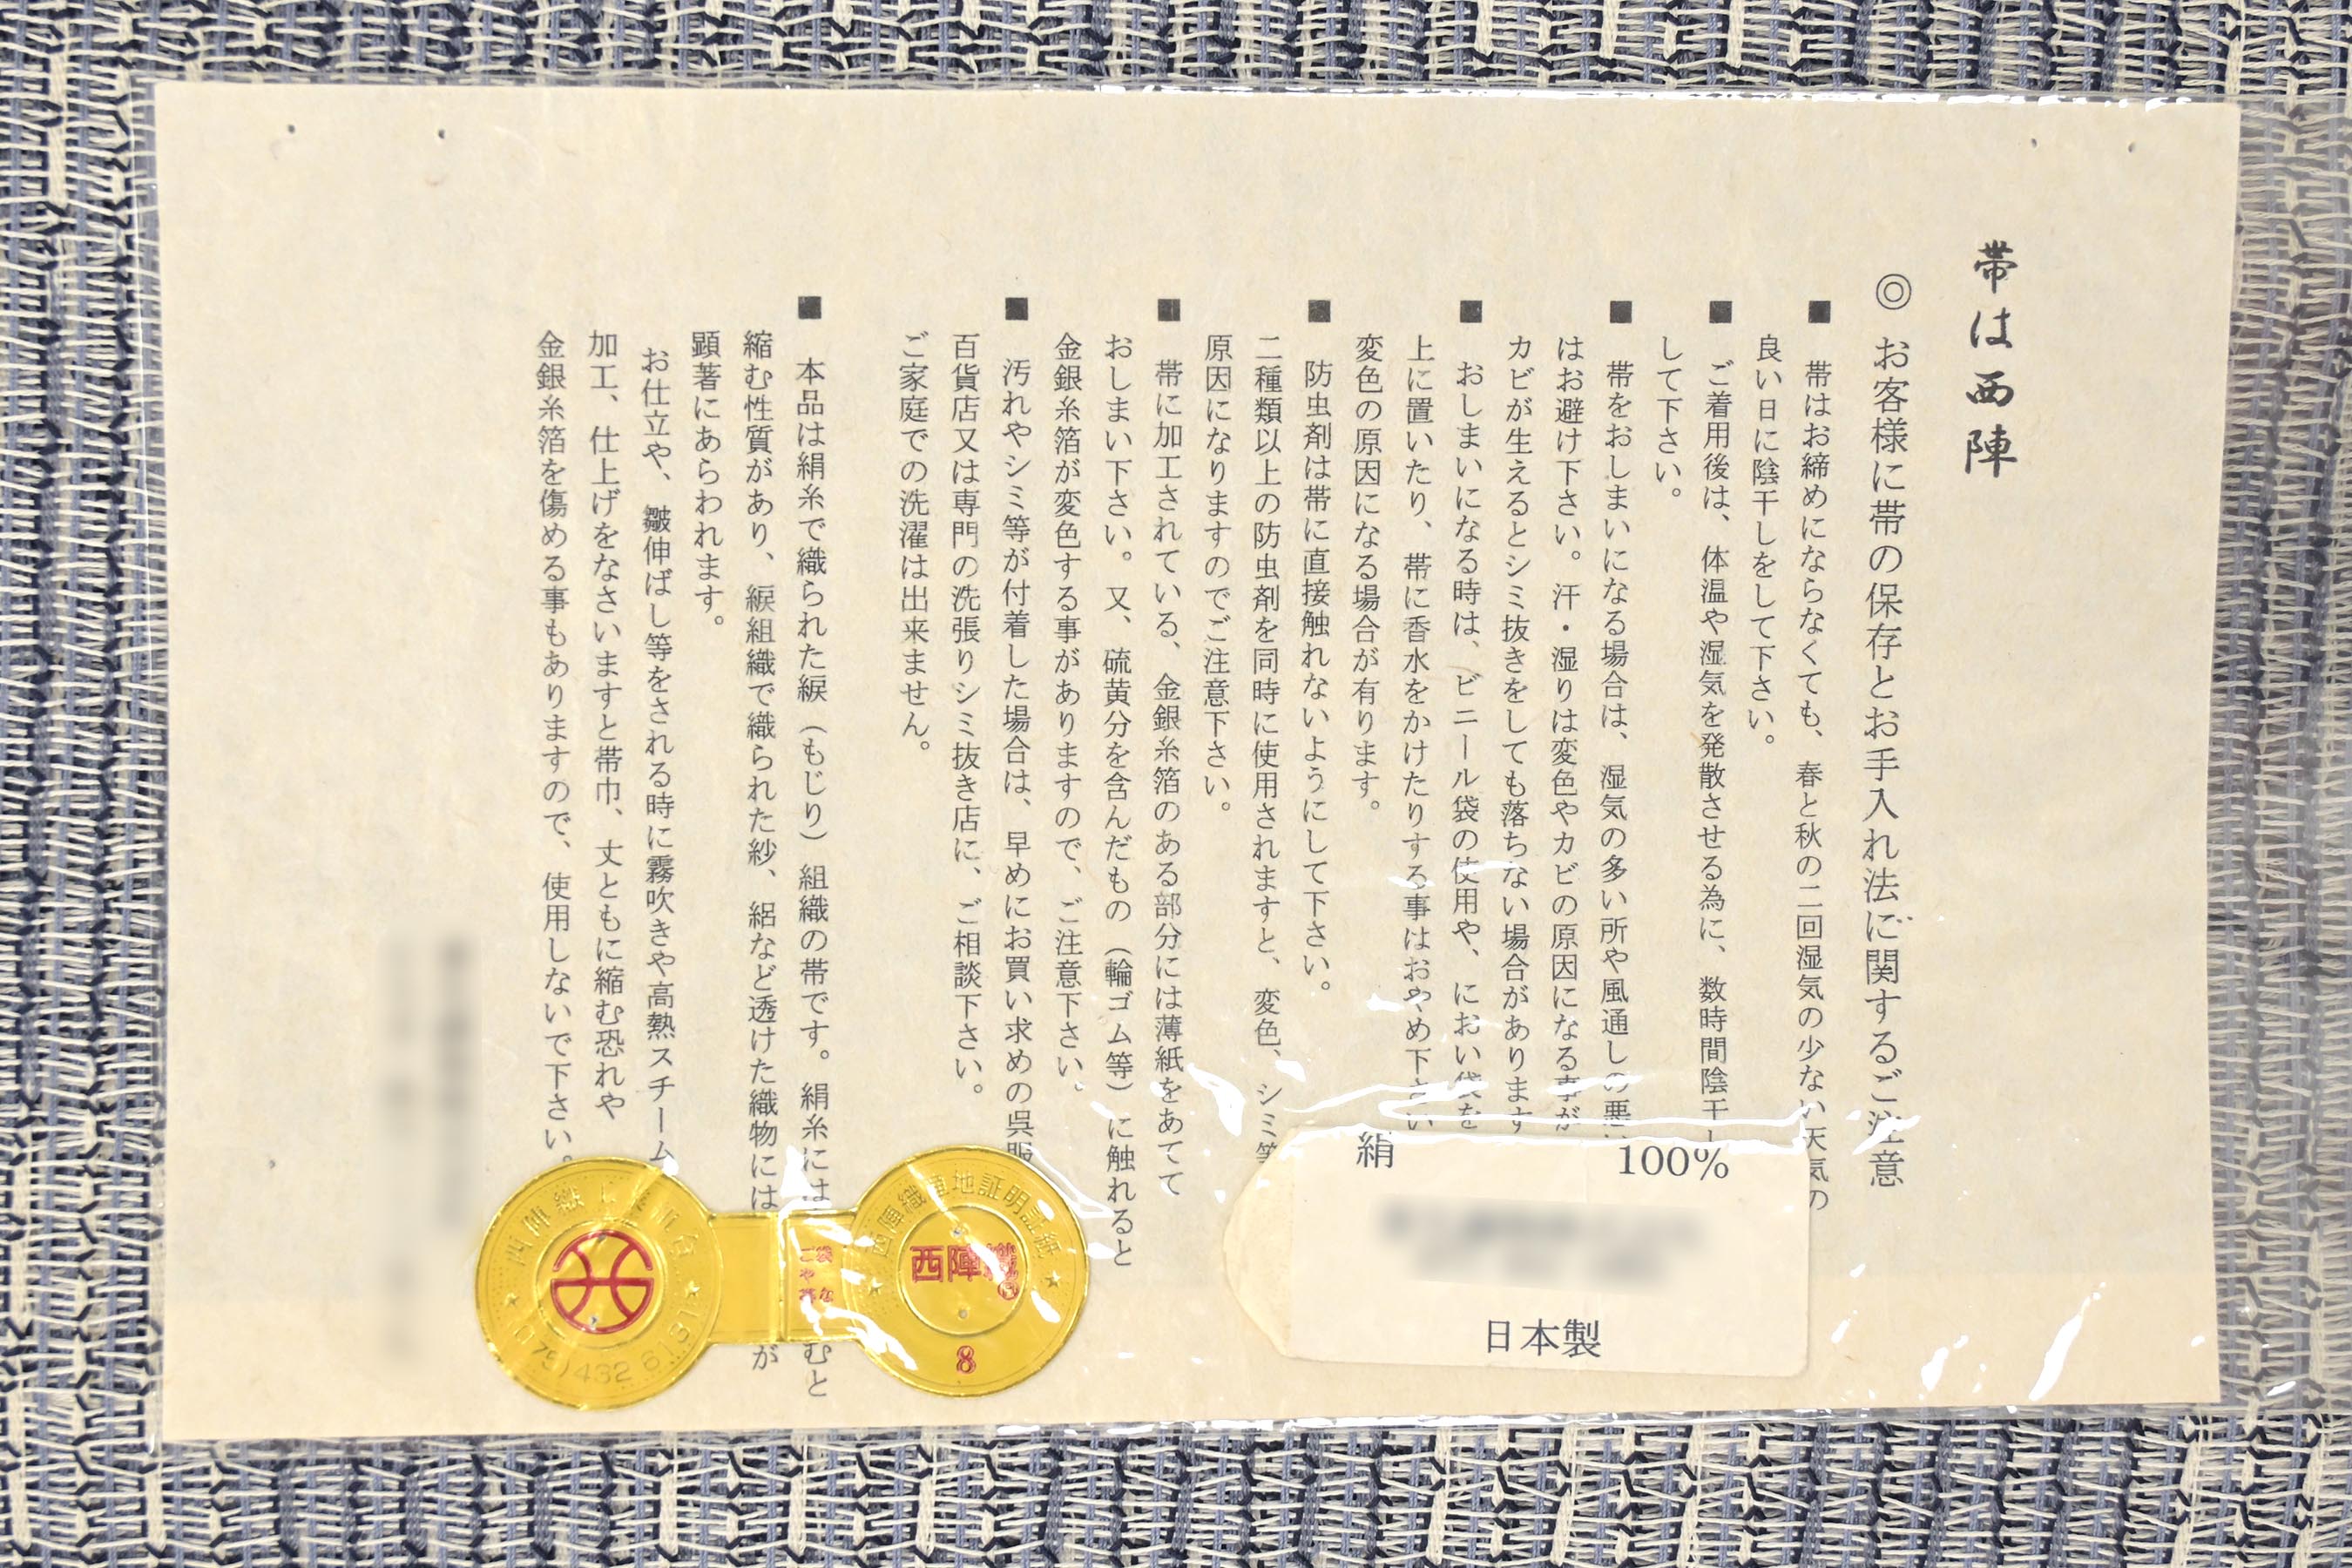 帯は西陣
◎ お客様に帯の保存とお手入れ法に関するご注意
■ 帯はお締めにならなくても、春と秋の二回湿気の少ない天気の
良い日に陰干しをして下さい。
■ ご着用後は、体温や湿気を発散させる為に、数時間陰干し
して下さい。
■ 帯をおしまいになる場合は、湿気の多い所や風通しの悪い
はお避け下さい。汗・湿りは変色やカビの原因になる事が
カビが生えるとシミ抜きをしても落ちない場合があります
■ おしまいになる時は、ビニール袋の使用や、におい袋を
上に置いたり、帯に香水をかけたりする事はおやめ下さい
変色の原因になる場合が有ります。
■ 防虫剤は帯に直接触れないようにして下さい。
二種類以上の防虫剤を同時に使用されますと、変色、シミ等
原因になりますのでご注意下さい。
■ 帯に加工されている、金銀糸箔のある部分には薄紙をあてて
おしまい下さい。又、硫黄分を含んだもの（輪ゴム等）に触れると
金銀糸箔が変色する事がありますので、ご注意下さい。
■ 汚れやシミ等が付着した場合は、早めにお買い求めの呉服
百貨店又は専門の洗張りシミ抜き店に、ご相談下さい。
ご家庭での洗濯は出来ません。
■ 本品は絹糸で織られた綟（もじり）組織の帯です。絹糸には むと
縮む性質があり、綟組織で織られた紗、絽など透けた織物には が
顕著にあらわれます。
お仕立や、皺伸ばし等をされる時に霧吹きや高熱スチーム
加工、仕上げをなさいますと帯巾、丈ともに縮む恐れや
金銀糸箔を傷める事もありますので、使用しないで下さい。
絹 100%
日本製
西陣織産地証明証紙
西陣織
8
西陣織工業組合
432 6181